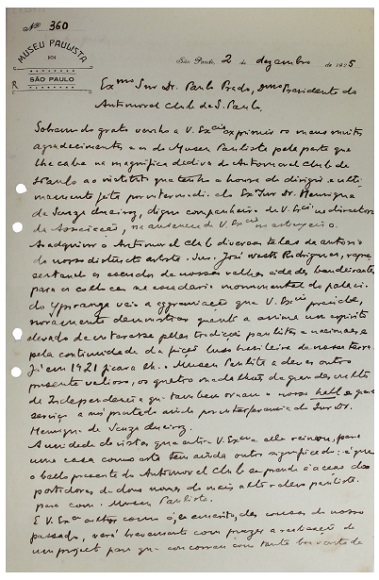 Nº 360
MUSEU PAULISTA
SÃO PAULO
São Paulo, 2 de dezembro de 1925
Exmo Snr Dr. Paulo Prado, Presidente do
Automovel Club de S. Paulo.
Sobremodo grato venho a V. Excia exprimir os meus muitos
agradecimentos e os do Museu Paulista pela parte que
lhe cabe na magnifica dadiva do Automovel Club de
S. Paulo ao instituto que tenho a honra de dirigir e
feita por intermedio do Exmo Snr Dr. Henrique
de Souza Queiroz, digno companheiro de V. Excia na directoria
da Associação, na ausencia de V. Excia
adquirir o Automovel Club diversas telas da autoria
do nosso distincto artista, Snr. José Wasth Rodrigues, repre
sentando os escudos de nossas velhas cidades bandeirantes
para os collocar na escadaria monumental do palacio
do Ypiranga veio a aggremiação que V. Excia preside,
novamente demonstrar quanto a anima um espirito
devotado de interesse pelas tradições paulistas e nacionaes e
pela continuidade da brasileira de nossa terra.
Já em 1921 ficara o Museu Paulista a dever outro
presente valioso, os quatro medalhões da
da Independencia que tambem ornam o nosso hall e que
serviço a mim prestado ainda por interferencia do Snr Dr.
Henrique de Souza Queiroz.
A unidade de vistas que entre V. Excia e elle reinou, para
uma casa como esta tem ainda outro significado: é que
o bello presente do Automovel Club
portadores de dous nomes do mais alto relevo paulista
para com o Museu Paulista.
E V. Excia das cousas do nosso
passado, verá brevemente com prazer a realização de
um projecto para que concorreu com tanta boa vontade